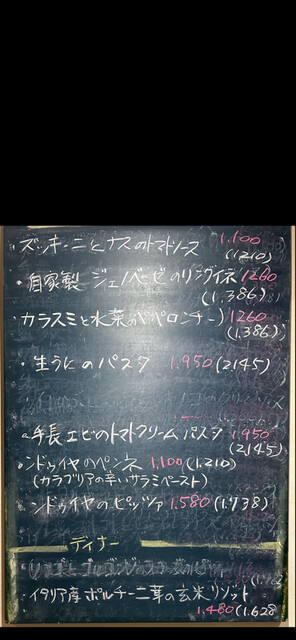 ・ズッキーニとナスのトマトソース 1.100
(1210)
・自家製 ジェノベーゼのリングイネ 1260
(1.386)
カラスミと水菜のペペロンチーノ 1260
(1.386)
・生うにのパスタ 1.950(2145)
・手長エビのトマトクリームパスタ 1.950
(2145)
・ンドゥイヤのペンネ 1.100(1.210)
(カラブリアの辛いサラミペースト)
ンドゥイヤのピッツァ 1.580(1.738)
ディナー
・イタリア産ポルチーニ茸の玄米リゾット
1.480(1.628